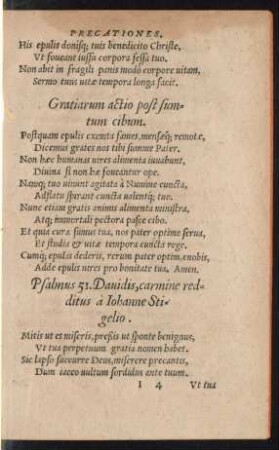 PRECATIONES.
His epulis donisq; tuis benedicito Christe,
Vt foueant iussu corpora fessa tuo.
Non abit in fragili panis modo corpore uitam,
Sermo tuus uitæ tempora longa facit.
Gratiarum actio post sum-
tum cibum.
Postquam epulis exemta fames, mensæq; remotæ,
Dicemus grates nos tibi summe Pater.
Non hæc humanas uires alimenta iuuabunt,
Diuina si non hæ foueantur ope.
Namq; tuo uiuunt agitata à Numine cuncta,
Adflatu spirant cuncta ualentq; tuo.
Nunc etiam gratis animis alimenta ministra,
Atq; immortali pectora pasce cibo.
Et quia curæ sumus tua, nos pater optime serua,
Et studia & uitæ tempora cuncta rege.
Cumq; epulis dederis, rerum pater optime, nobis,
Adde epulis uires pro bonitate tua. Amen.
Psalmus 51. Dauidis, carmine red-
ditus à Iohanne Sti-
gelio.
Mitis ut es miseris, preßis ut sponte benignus,
Vt tua perpetuum gratia nomen habet.
Sic lapso succurre Deus, miserere precantis,
Dum iaceo uultum sordidus ante tuum.
I 4 Vt tua